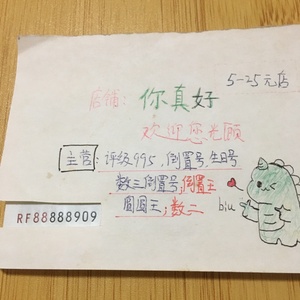 5-25元店
店铺：你真好
欢迎您光顾
主营：评级995，倒置号，生日号
数三倒置号，倒置王
圆圆王；数二
RF88888909
biu